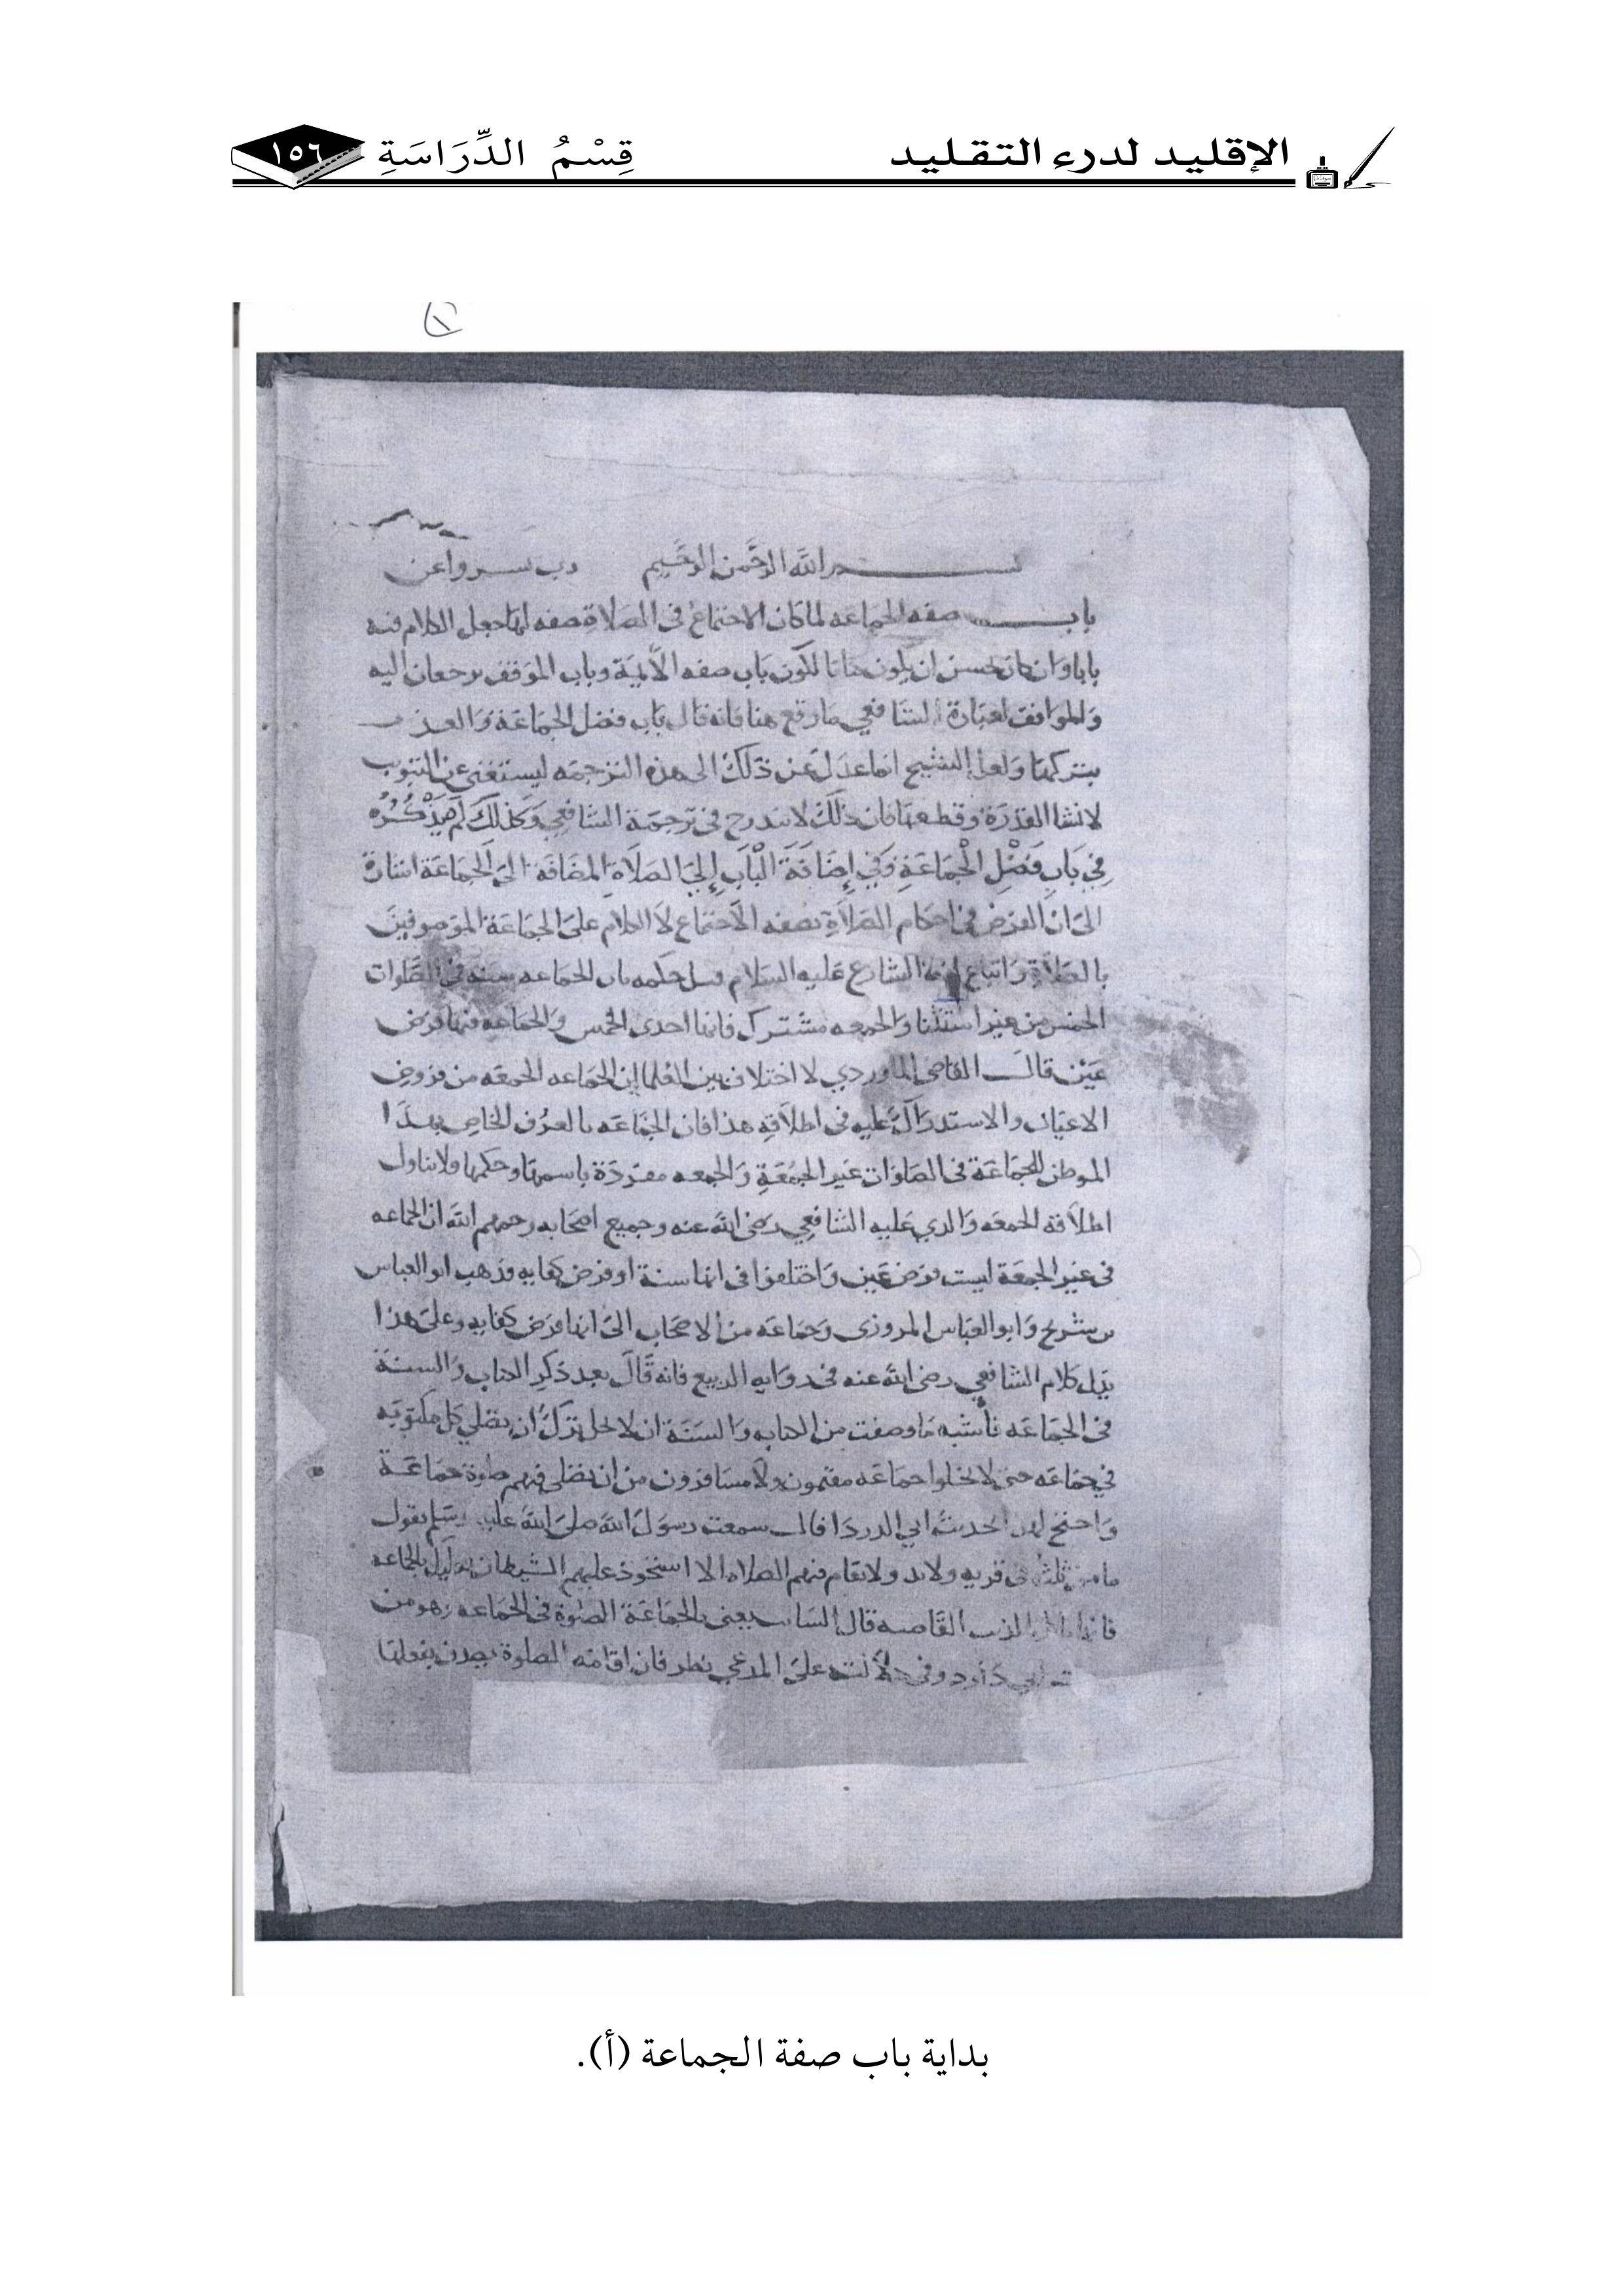 الإقليد لدرء التقليد
قِسْمُ الدِّرَاسَةِ
١٥٦
بسم الله الرَّحْمن الرَّحيم رب يسر واعن
باب صفه الجماعه لما كان الاجتماع في الصلاةِ صفه لها جعل الكلام فيه
بابا وان كان يحسن ان يكون كتابا لكون بَاب صفه الأئمة وباب الموقف يرجعان اليه
والموافق لعبارة الشافعي ما وقع هنا فانه قال باب فضل الجماعة وَالعذر
بتركها وَلعل الشيخ انما عدل عن ذَلكَ الى هذه الترجمه ليستغنى عن التبويب
لانشا القدرَة وقطعها فان ذلكَ لا يندرج في ترجمة الشافعي وَكذلكَ لم يَذْكُرْهُ
فِي بَابِ فَضْلِ الْجَمَاعَةِ وَفِي إِضَافَةَ الْبَابِ إِلَى الصَلاَةِ المضَافَة الى الجماعَة اشارة
الى ان الغرض في احكام الصَلاَةِ بصفه الاجتماع لا الكلام على الجماعَة الموَصوفين
بالصَلاةِ وَاتباع الشارع عَليه السَلام قيل حكمه باب الجماعه سنه في الصَّلوات
الخمس من غير استثنا وَالجمعه مشترك فانها احدى الخمس وَالجماعه فيها فرض
عَيْن قالَ القاضى الماوردي لا اختلاف بين العُلما ان الجمَاعه الجمعَه من فروض
الاعيان والاستدراك عليه في اطلاقِهِ هذا فان الجمَاعَه بالعرُف الخاص بهذا
الموطن للجمَاعَة في الصلوَات غَير الجمُعَةِ وَالجمعه مفردَة باسمهَا وحكمها ولا يتناول
اطلاقه الجمعَه وَالذي عَليه الشافعي رضى الله عنه وجميع اصحَابه رحمهم الله ان الجماعه
في غير الجمعَة ليست فرض عَين وَاختلفوا في انها سنة او فرض كفايه وذهب ابو العباس
بن سُريج وَابو العباس المروزى وَجماعَه من الاصحَاب الى انها فرَض كفايه وعلى هذا
يدل كلام الشافعي رضى الله عنه في روَايه الربيع فانه قَالَ بعد ذكر الكتاب وَالسنة
في الجمَاعَه فأشبه مَا وصفت من الكتاب وَالسنة ان لا يحل ترك ان يصَلي كل مكتوبَه
في جمَاعَه حتى لا يخلوا جماعَه مقيمون ولا مسَافرون من ان يصَلى فيهم صلوة جمَاعَة
وَاحتج لهذا بحديث ابي الدردا قال سمعت رسوَل الله صلى الله عليه وسلم يقول
ما من ثلثه في قريه ولا بد ولا تقام فيهم الصلاه الا استحوذ عليهم الشيطان فعليك بالجماعه
فانما الذيب القَاصيه قال السَايب يعنى بالجماعَة الصلوة في الجماعه وهو من
ابي دَاود وفي دلالته على المدعي نظر فان اقامَه الصلوة يصدق بفعلها
بداية باب صفة الجماعة (أ).